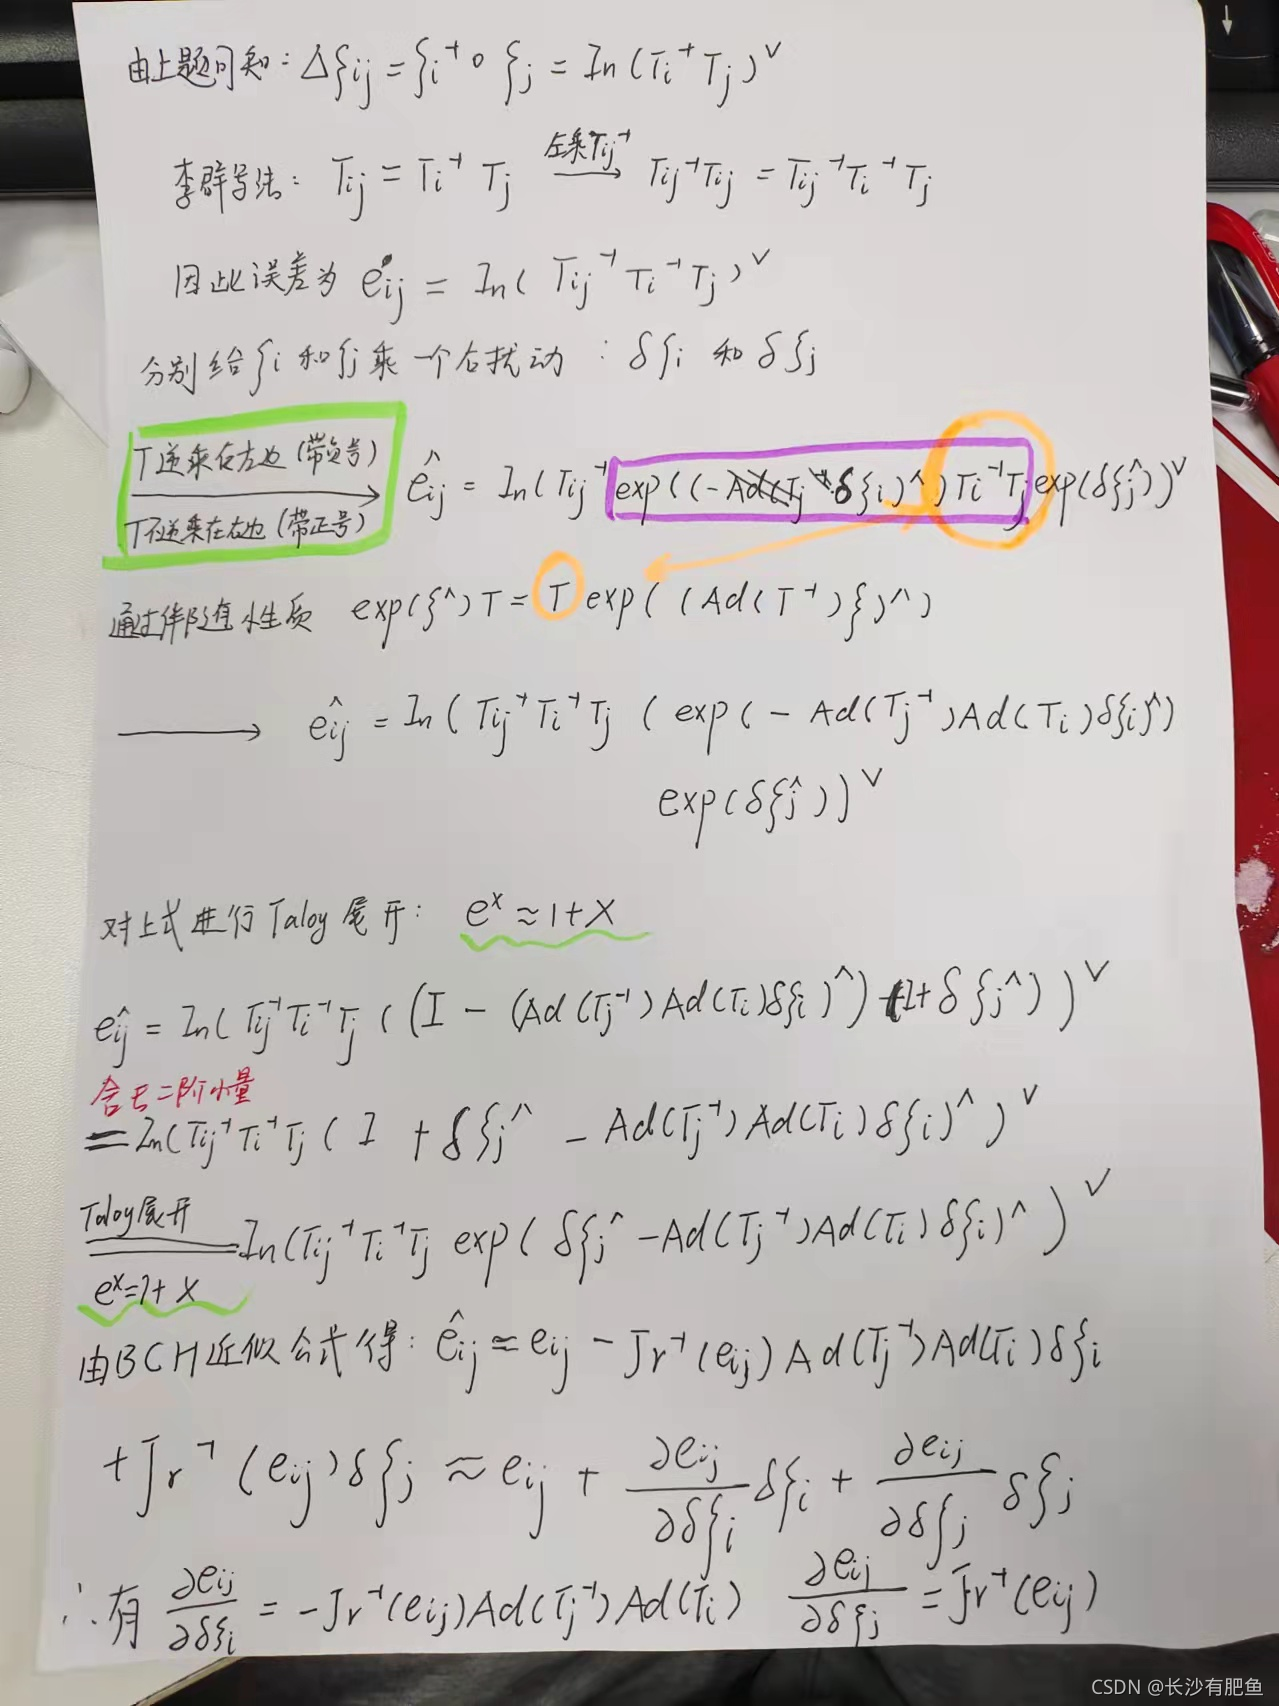 由上题可知: Δξij = ξi⁻¹ ∘ ξj = In(Ti⁻¹Tj)ˇ
左乘Tij⁻¹
李群写法: Tij = Ti⁻¹ Tj → Tij⁻¹Tij = Tij⁻¹Ti⁻¹Tj
因此误差为 eij = In( Tij⁻¹ Ti⁻¹Tj)ˇ
分别给ξi和ξj乘一个右扰动: δξi 和 δξj
T逆乘在左边(带负号)
T不逆乘在右边(带正号)
êij = In(Tij⁻¹ exp((-δξi)^)Ti⁻¹Tj exp(δξj^))ˇ
通过伴随性质 exp(ξ^)T = T exp((Ad(T⁻¹)ξ)^)
→ êij = In(Tij⁻¹Ti⁻¹Tj (exp(-Ad(Tj⁻¹)Ad(Ti)δξi^)
exp(δξj^))ˇ
对上式进行Taloy展开: e^x ≈ 1+X
êij = In(Tij⁻¹Ti⁻¹Tj ((I - (Ad(Tj⁻¹)Ad(Ti)δξi)^) (I+δξj^))ˇ
舍去二阶小量
= In(Tij⁻¹Ti⁻¹Tj ( I + δξj^ - Ad(Tj⁻¹)Ad(Ti)δξi)^)ˇ
Taloy展开
= In(Tij⁻¹Ti⁻¹Tj exp(δξj^ -Ad(Tj⁻¹)Ad(Ti)δξi)^)ˇ
e^x=1+X
由BCH近似公式得: êij ≈ eij - Jr⁻¹(eij)Ad(Tj⁻¹)Ad(Ti)δξi
+Jr⁻¹(eij)δξj ≈ eij + ∂eij/∂δξi δξi + ∂eij/∂δξj δξj
∴有 ∂eij/∂δξi = -Jr⁻¹(eij)Ad(Tj⁻¹)Ad(Ti) ∂eij/∂δξj = Jr⁻¹(eij)
CSDN @长沙有肥鱼